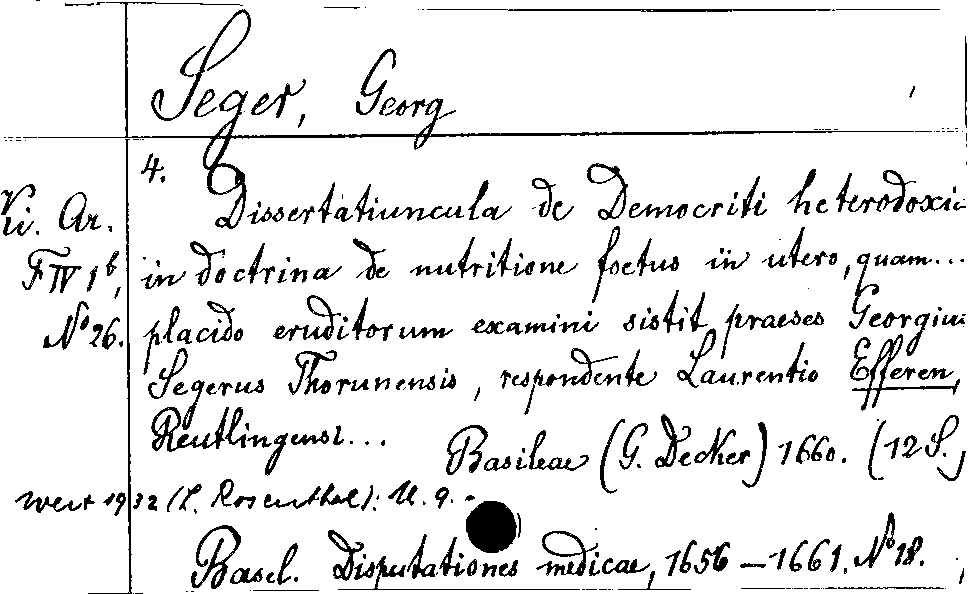 Seger, Georg
4.
Ki. Ar.
F IV 1b,
No 26.
Dissertatiuncula de Democriti heterodoxia
in doctrina de nutritione foetus in utero, quam...
placido eruditorum examini sistit praeses Georgius
Segerus Thorunensis, respondente Laurentio Efferen,
Reutlingensi...
Basileae (G. Decker) 1660. (12 S.)
Wert 1932 (L. Rosenthal): M. 9.-
Basel. Disputationes medicae, 1656-1661. No 18.